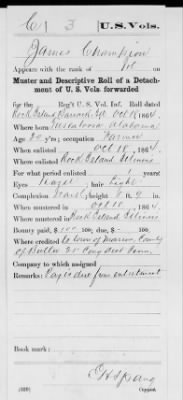 C | 3 | U.S. Vols.
James Champion
Appears with the rank of Pvt on
Muster and Descriptive Roll of a Detach-
ment of U. S. Vols. forwarded
for the Reg't U. S. Vol. Inf. Roll dated
Rock Island Barracks, Ill Oct 18, 1864.
Where born Tuscaloosa Alabama
Age 30 y'rs; occupation Farmer
When enlisted Oct 18, 1864.
Where enlisted Rock Island Illinois
For what period enlisted 1 years.
Eyes Hazel; hair Light
Complexion; height 5 ft. 9 in.
When mustered in Oct 18, 1864
Where mustered in Rock Island Illinois
Bounty paid $ 100; due $ 100
Where credited
of Butler Penn
Company to which assigned
Remarks: Pay is due from enlistment
Book mark:
Copyist.